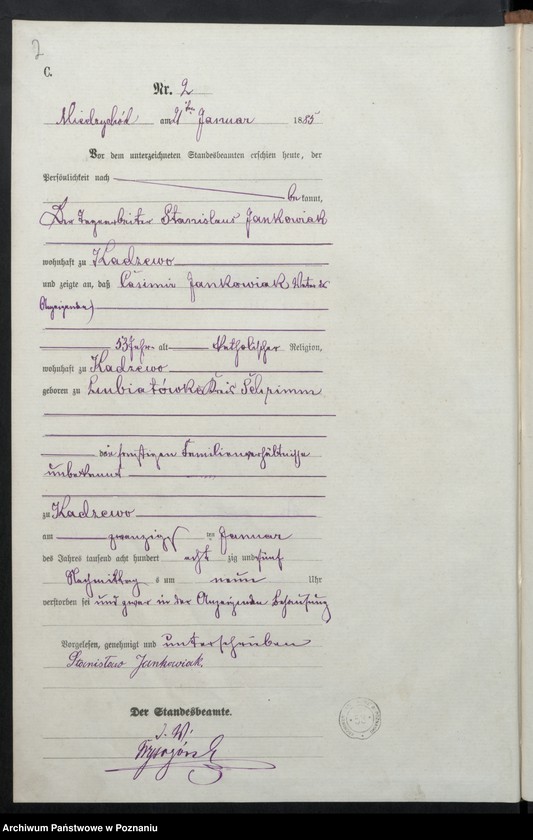 2
C.
Nr. 2
Miedzychód am 21ten Januar 1885
Vor dem unterzeichneten Standesbeamten erschien heute, der
Persönlichkeit nach
bekannt,
Der Stanislaus Jankowiak
wohnhaft zu Kadzewo
und zeigte an, daß Casimir Jankowiak Vater des
Anzeigenden)
53 Jahr alt katholischer Religion,
wohnhaft zu Kadzewo
geboren zu Lubiatówko Kreis Schrimm
die sonstigen Familienverhältnisse
unbekannt
zu Kadzewo
am zwanzigsten Januar
des Jahres tausend acht hundert achtzig und fünf
Nachmittags um neun Uhr
verstorben sei und zwar in der Anzeigenden Behausung
Vorgelesen, genehmigt und unterschrieben
Stanisław Jankowiak.
Der Standesbeamte.
Archiwum Państwowe w Poznaniu